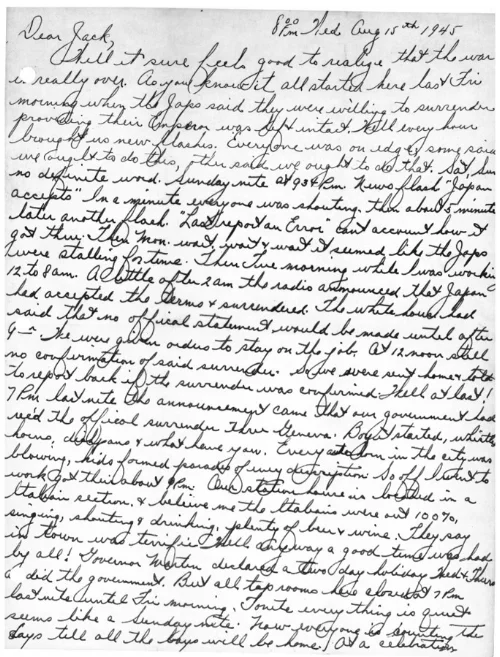 8:00 Pm Wed Aug 15th 1945
Dear Jack,
Well it sure feels good to realize that the war
is really over. As you know it all started here last Fri
morning when the Japs said they were willing to surrender
providing their Emperor was left intact. Well every hour
brought us new flashes. Everyone was on edge, some said
we ought to do this, other said we ought to do that. Sat, Sun
no definite word. Sunday nite at 934 Pm. News flash "Japan
accepts" In a minute everyone was shouting. then about 5 minutes
later another flash. "Last report an Error" can't account how it
got thru. Then Mon. wait, wait & wait it seemed like the Japs
were stalling for time. Then Tue morning while I was working
12 to 8am. A little after 2am the radio announced that Japan
had accepted the terms & surrendered. The white house had
said that no offical statement would be made until after
9 We were given orders to stay on the job. At 12 noon still
no confirmation of said surrender. So we were sent home & told
to report back if the surrender was confirmed. Well at last!
7 Pm last nite the announcement came that our government had
rec'd the offical surrender Thru Geneva. Boy it started, whistles
horns, & what have you. Every in the city was
blowing, kids formed parades of every description. So off I went to
work Got their about 9pm. Our station house is located in a
Italain section. & believe me the Italains were out 100%,
singing, shouting & drinking, plenty of beer & wine. They say
in town was terrific. Well anyway a good time was had
by all! Governor Martin declared a two day holiday Wed & Thurs
& did the government. But all taprooms here closed at 7 Pm
last nite until Fri morning. Tonite everything is quiet
seems like a Sunday nite. Now everyone is counting the
days till all the boys will be home. At a celebration